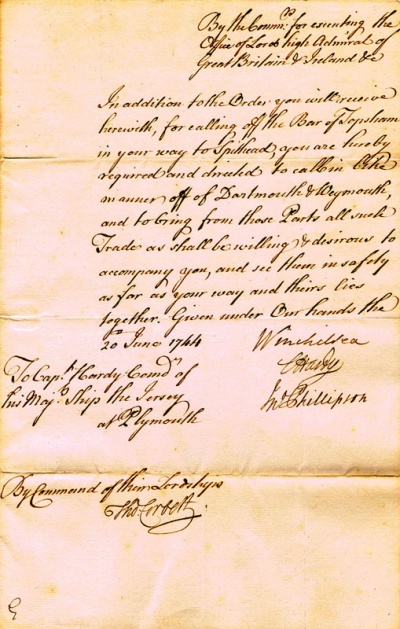 By the Comm.rs for executing the
Office of Lord high Admiral of
Great Britain & Ireland &c
In addition to the Order you will receive
herewith, for calling off the Bar of Topsham
in your way to Spithead, you are hereby
required and directed to call in like
manner off of Dartmouth & Weymouth,
and to bring from those Parts all such
Trade as shall be willing & desirous to
accompany you, and see them in safety
as far as your way and theirs lies
together. Given under Our hands the
20th June 1744
Winchelsea
CHardy
Jno. Phillipson
To Capt. Hardy Comdr. of
his Maj.s Ship the Jersey
at Plymouth
By Command of their Lordships
Tho Corbett